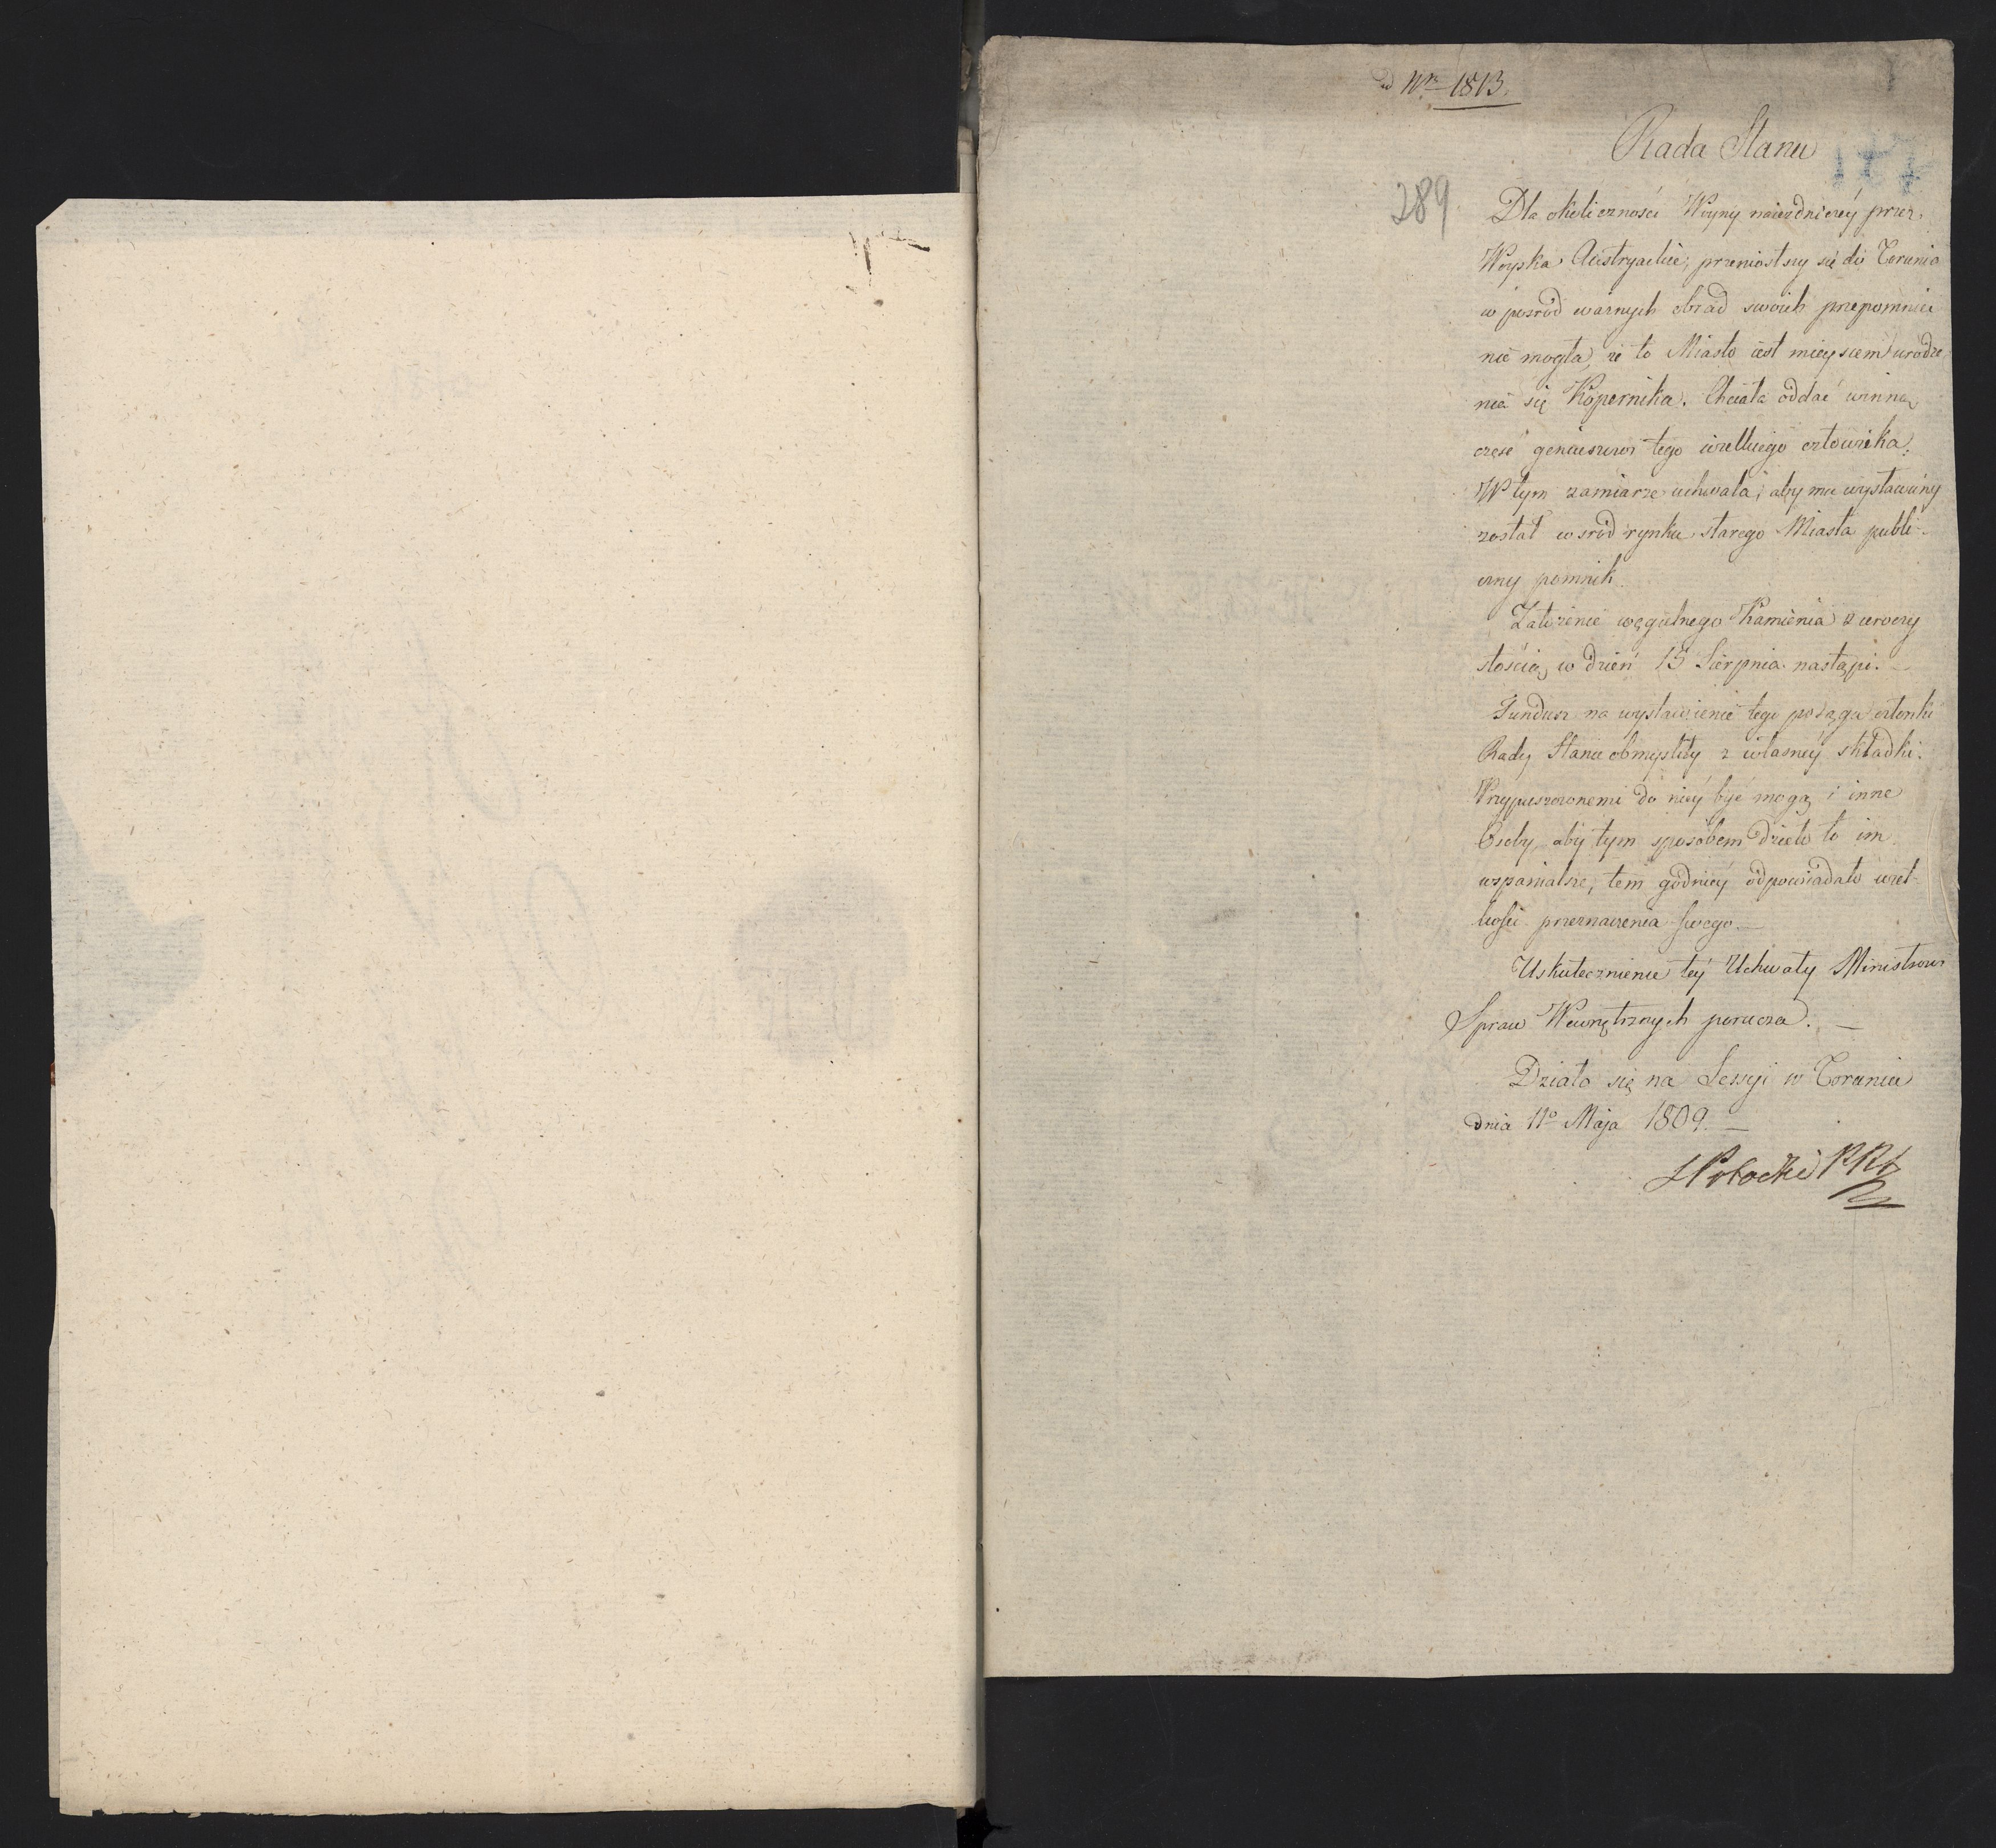 ad Nr 1813.
Rada Stanu
289
Dla okoliczności Woyny naiezdniczéy przez
Woyska Austryackie, przeniosłszy się do Torunia
w pośród ważnych obrad swoich przepomnieć
nie mogła, że to Miasto iest mieyscem urodze
nia się Kopernika. Chciała oddać winną
cześć geniuszowi tego wielkiego człowieka.
W tym zamiarze uchwala, aby mu wystawiony
został wśród rynku starego Miasta publi-
czny pomnik.
Założenie węgielnego Kamienia z uroczy
stością w dzień 15 Sierpnia nastąpi.
Fundusz na wystawienie tego posągu członki
Rady Stanu obmyśliły z własnéy składki.
Przypuszczonemi do niéy być mogą i inne
Osoby, aby tym sposobem dzieło to im
wspanialsze, tem godniéy odpowiadało wiel-
kości przeznaczenia swego.
Uskutecznienie téy Uchwały Ministrowi
Spraw Wewnętrznych porucza. —
Działo się na Sessyi w Toruniu
dnia 11o Maja 1809. —
Potocki